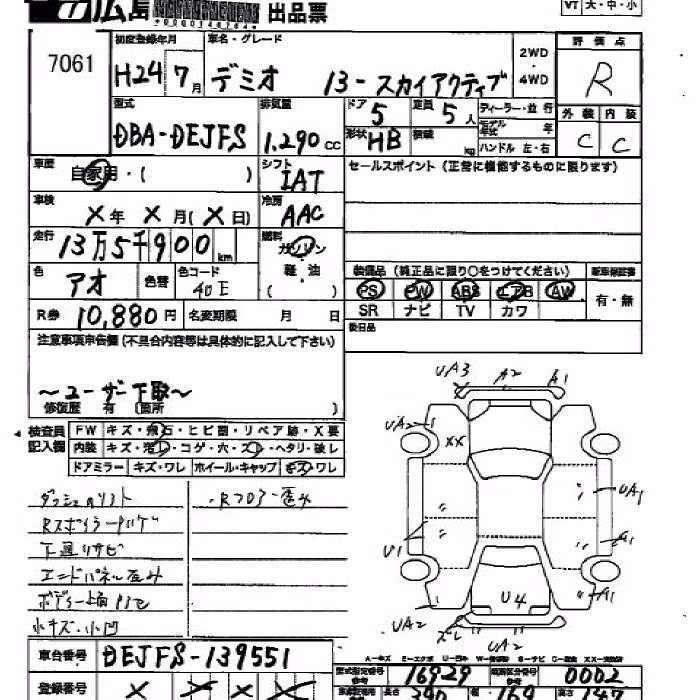 広島 出品票
VT 大・中・小
7061
初度登録年月 車名・グレード 2WD 4WD 評価点
H24 7月 デミオ 13-スカイアクティブ R
型式 排気量 ドア 5 定員 5人 ディーラー・並行 外装 内装
DBA-DEJFS 1.290cc 形状 HB 積載 kg モデル年式 年 ハンドル 左・右 C C
車歴 自家用・( ) シフト IAT セールスポイント(正常に機能するものに限ります)
車検 X年 X月(X日) 冷房 AAC
走行 13万5千900km 燃料 ガソリン 軽・油 ( )
色 アオ 色替 色コード 40E 装備品(純正品に限り○をつけてください) 新車保証書
PS PW ABS エアB AW 有・無
SR ナビ TV カワ
R券 10,880円 名変期限 月 日 後日品
注意事項申告欄(不具合内容等は具体的に記入して下さい)
〜ユーザー下取〜
修復歴 有 (箇所 )
検査員記入欄 FW キズ・飛石・ヒビ割・リペア跡・X要
内装 キズ・汚レ・コゲ・穴・スレ・ヘタリ・破レ
ドアミラー キズ・ワレ ホイール・キャップ キズ・ワレ
ダッシュのリフト ・Rフロアー歪み
Rスポイラーハゲ
下廻りサビ
エンドパネル歪み
ボディー上面
小キズ・小凹
UA3 A2 A1
UA2 XX
UA1
U1 A1
UA2 U4 A1
スレ UA2
A=キズ E=エクボ U=凹み W=補修跡 S=サビ C=腐蝕 X=要交換 XX=交換済
車台番号 DEJFS-139551
型式指定番号 16929 類別区分番号 0002
登録番号 X X X X
長さ 390 幅 169 高さ 147